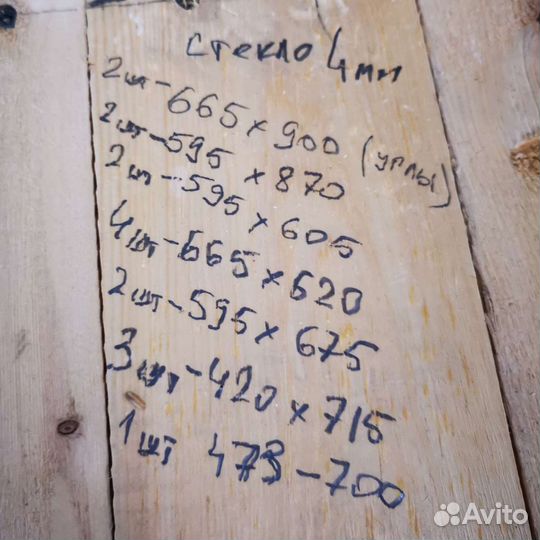 стекло 4мм
2шт-665×900 (углы)
2шт-595×870
2шт-595×605
4шт-665×620
2шт-595×675
3шт-420×715
1шт 473-700
Avito